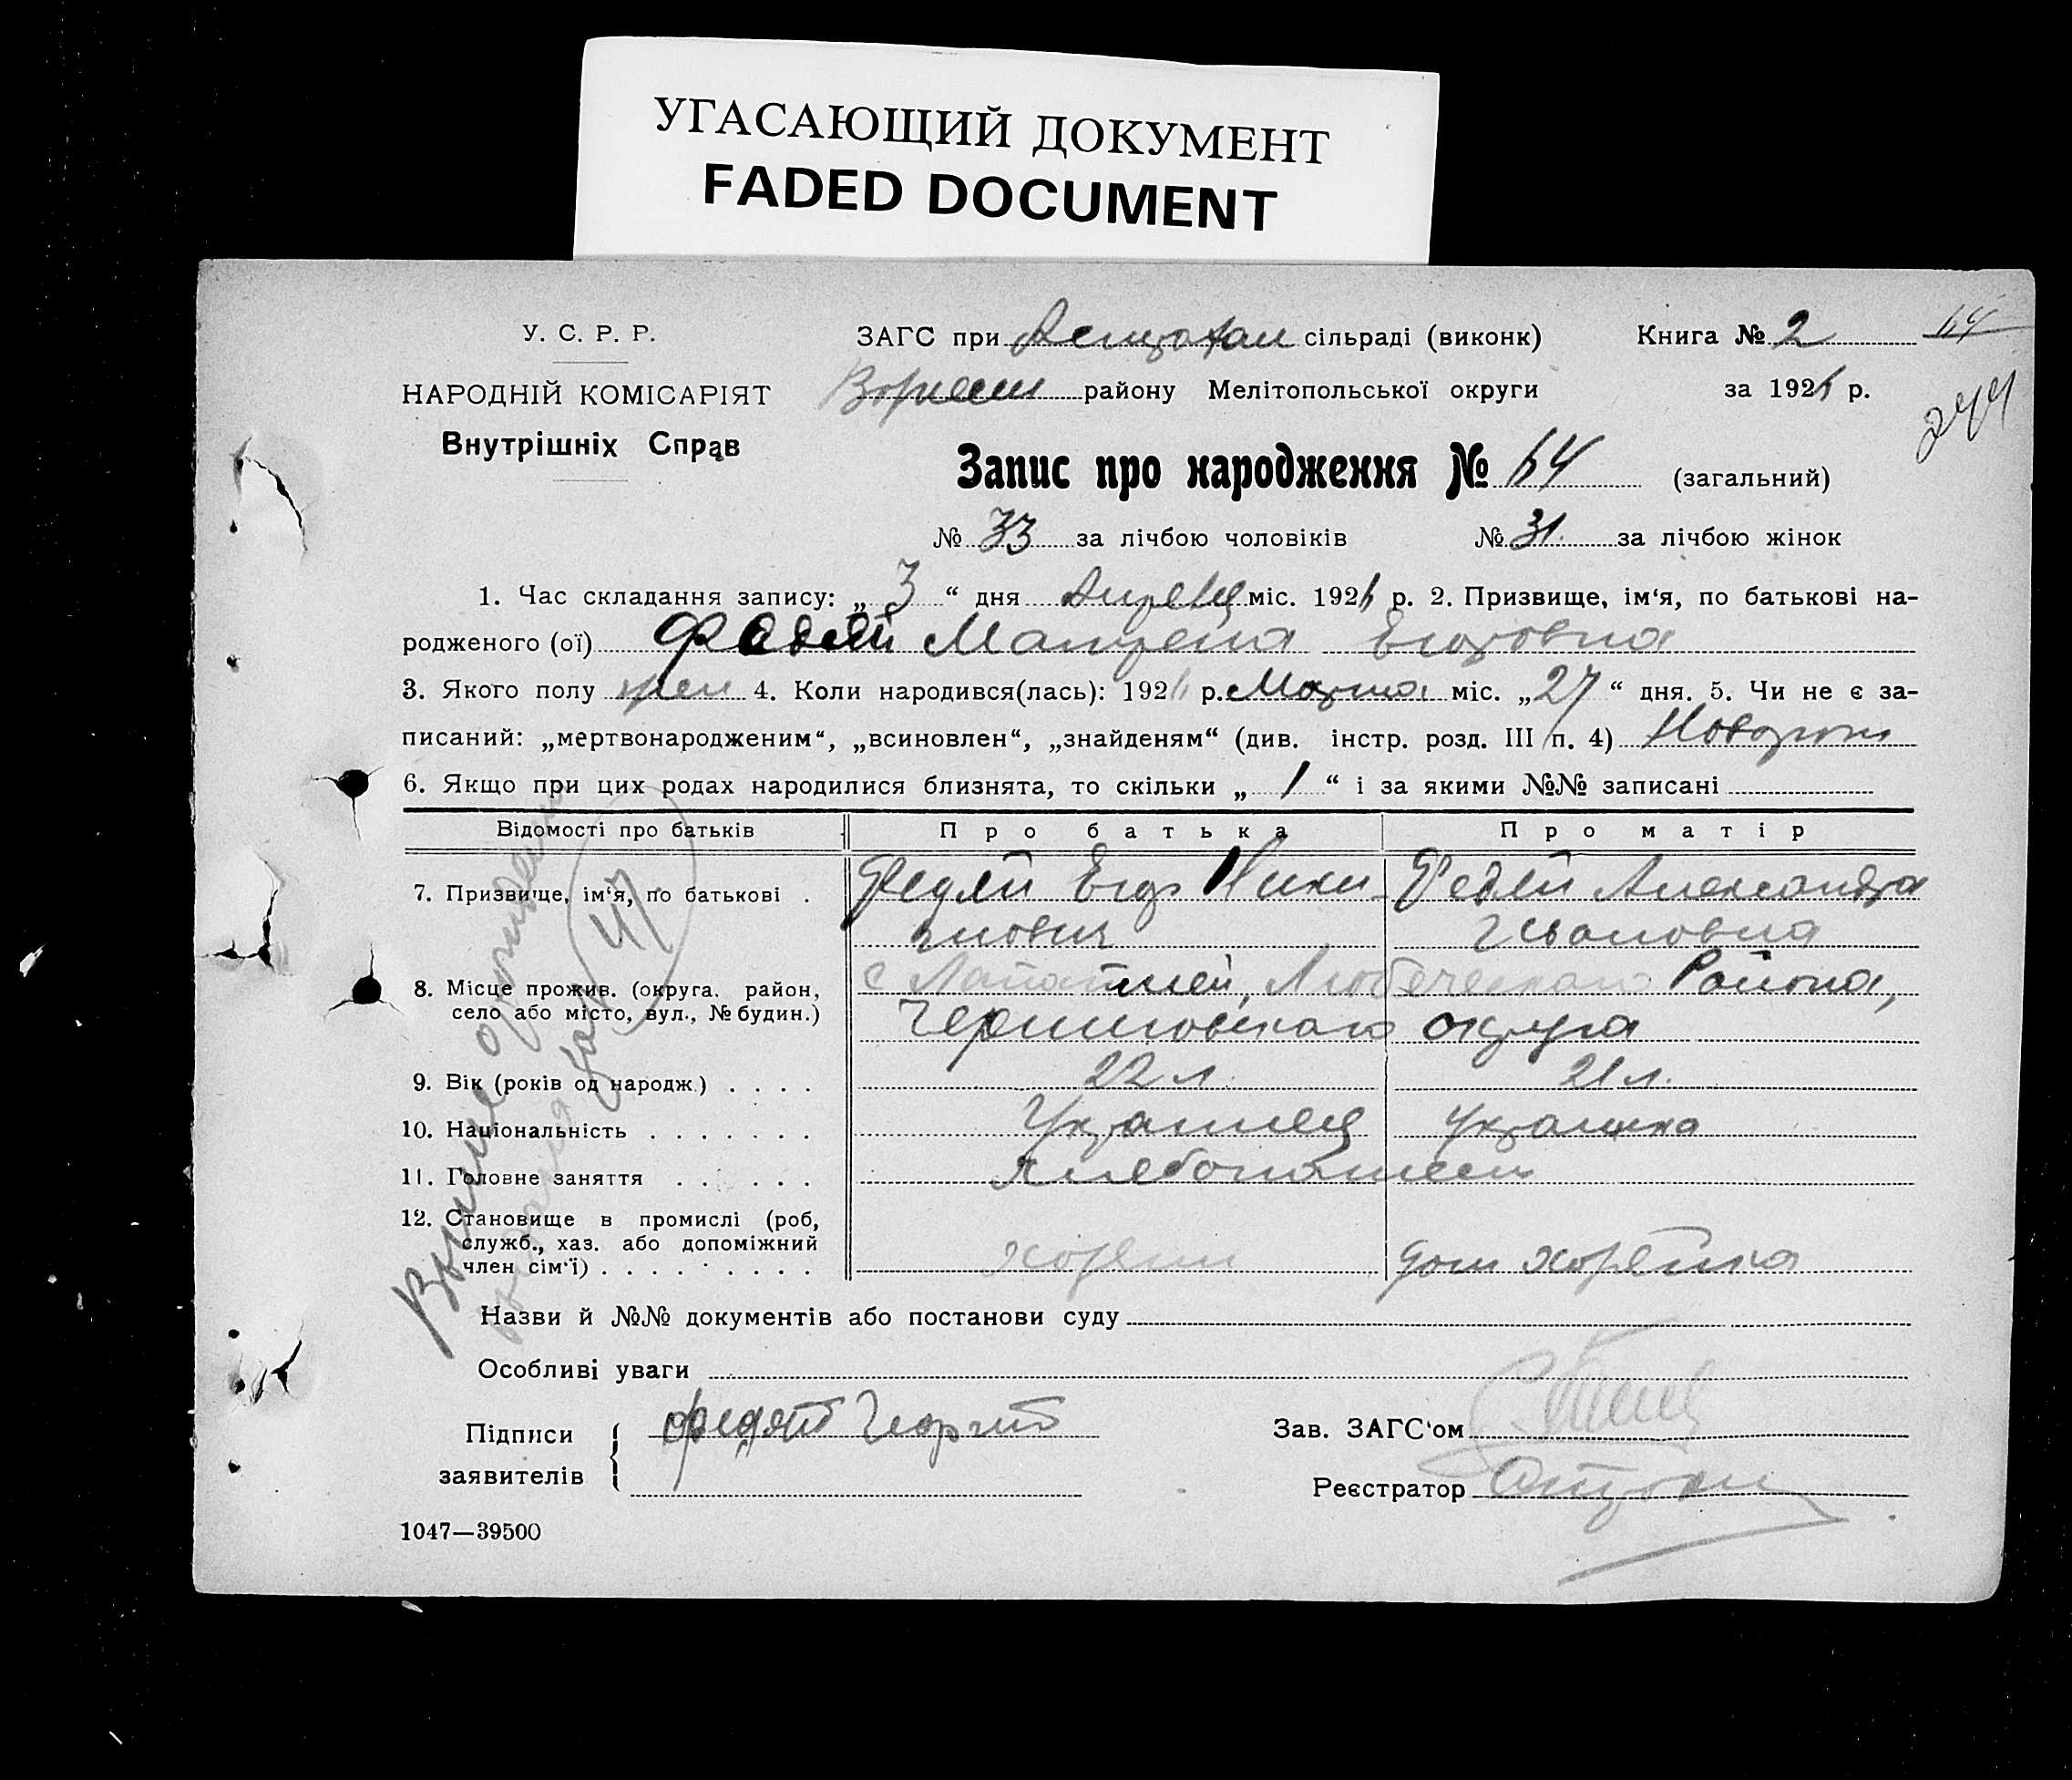 УГАСАЮЩИЙ ДОКУМЕНТ
FADED DOCUMENT
У. С. Р. Р.
НАРОДНІЙ КОМІСАРІЯТ
Внутрішніх Справ
ЗАГС при сільраді (виконк)
району Мелітопольської округи
Книга № 2
64
за 192 р.
244
Запис про народження № 64 (загальний)
№ 33 за лічбою чоловіків № 31 за лічбою жінок
1. Час складання запису: „ 3 “ дня Апреля міс. 192 р. 2. Призвище, ім‘я, по батькові на-
родженого (ої) Федяй Матрена Егоровна
3. Якого полу жен 4. Коли народився(лась): 192 р. Марта міс. „ 27 “ дня. 5. Чи не є за-
писаний: „мертвонародженим“, „всиновлен“, „знайденям“ (див. інстр. розд. III п. 4)
6. Якщо при цих родах народилися близнята, то скільки „ 1 “ і за якими №№ записані
Відомості про батьків Про батька Про матір
7. Призвище, ім‘я, по батькові . Федяй Егор Федяй Александра
Ивановна
8. Місце прожив. (округа, район, с Любеческого Района,
село або місто, вул., № будин.) Черниговского округа
9. Вік (років од народж.) . . . . 22 л. 21 л.
10. Національність . . . . . . . Украинец Украинка
11. Головне заняття . . . . . . Хлебопашец
12. Становище в промислі (роб,
служб., хаз. або допоміжний
член сім‘ї) . . . . . . . . . хозяин дом хозяйка
Назви й №№ документів або постанови суду
Особливі уваги
Підписи
заявителів
Федяй Георгий
Зав. ЗАГС‘ом
Реєстратор
1047—39500